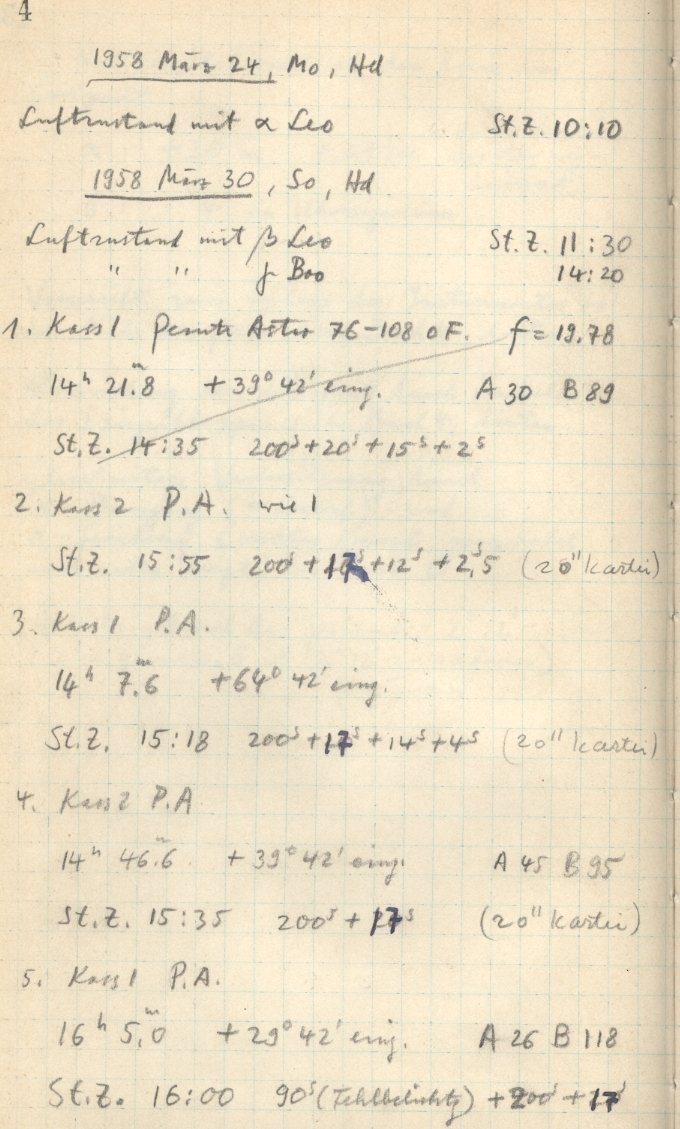 4
1958 März 24, Mo, Hd
Luftzustand mit α Leo St.Z. 10:10
1958 März 30, So, Hd
Luftzustand mit β Leo St.Z. 11:30
" " γ Boo 14:20
1. Kass 1 Perutz Astro 76-108 o F. f = 19.78
14ʰ 21.8ᵐ +39° 42' eing. A 30 B 89
St.Z. 14:35 200ˢ + 20ˢ + 15ˢ + 2ˢ
2. Kass 2 P.A. wie 1
St.Z. 15:55 200ˢ + 17ˢ + 12ˢ + 2,ˢ5 (20" Kartei)
3. Kass 1 P.A.
14ʰ 7.6ᵐ +64° 42' eing.
St.Z. 15:18 200ˢ + 17ˢ + 14ˢ + 4ˢ (20" Kartei)
4. Kass 2 P.A
14ʰ 46.6ᵐ +39° 42' eing. A 45 B 95
St.Z. 15:35 200ˢ + 17ˢ (20" Kartei)
5. Kass 1 P.A.
16ʰ 5,0ᵐ +29° 42' eing. A 26 B 118
St.Z. 16:00 90ˢ (Fehlbelichtg) + 200ˢ + 17ˢ